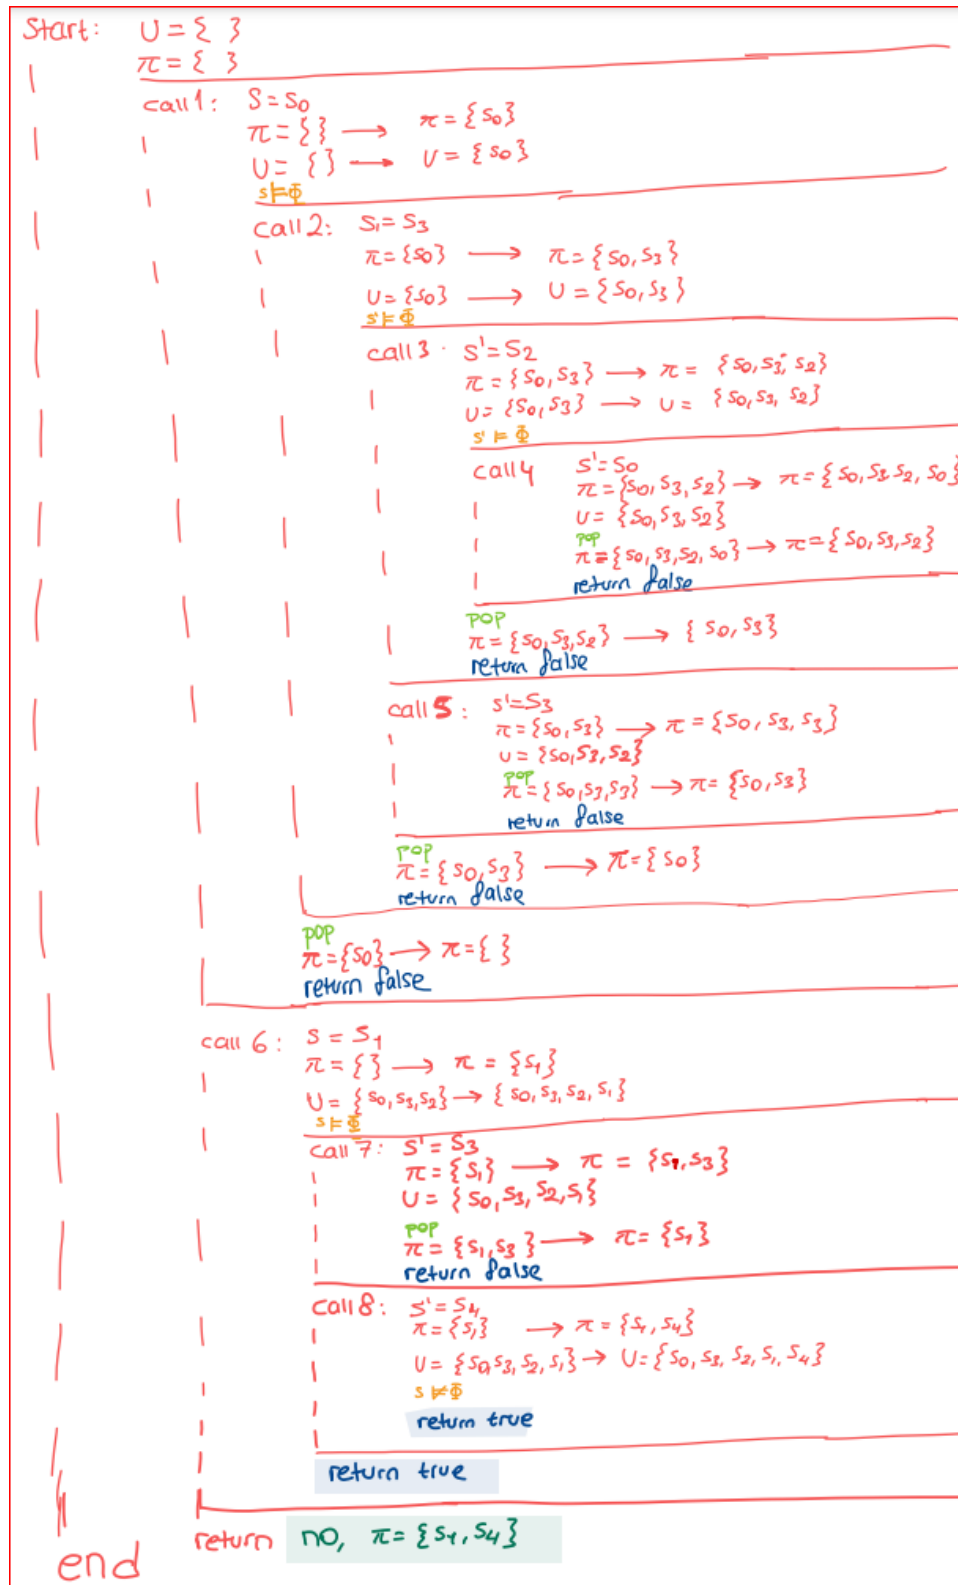 Start: U = { }
π = { }
call 1: S = S0
π = { } → π = {S0}
U = { } → U = {S0}
s ⊨ Φ
call 2: S' = S3
π = {S0} → π = {S0, S3}
U = {S0} → U = {S0, S3}
s' ⊨ Φ
call 3: S' = S2
π = {S0, S3} → π = {S0, S3, S2}
U = {S0, S3} → U = {S0, S3, S2}
s' ⊨ Φ
call 4 S' = S0
π = {S0, S3, S2} → π = {S0, S3, S2, S0}
U = {S0, S3, S2}
pop
π = {S0, S3, S2, S0} → π = {S0, S3, S2}
return false
pop
π = {S0, S3, S2} → {S0, S3}
return false
call 5: S' = S3
π = {S0, S3} → π = {S0, S3, S3}
U = {S0, S3, S2}
pop
π = {S0, S3, S3} → π = {S0, S3}
return false
pop
π = {S0, S3} → π = {S0}
return false
pop
π = {S0} → π = { }
return false
call 6: S = S1
π = { } → π = {S1}
U = {S0, S3, S2} → {S0, S3, S2, S1}
s ⊨ Φ
call 7: S' = S3
π = {S1} → π = {S1, S3}
U = {S0, S3, S2, S1}
pop
π = {S1, S3} → π = {S1}
return false
call 8: S' = S4
π = {S1} → π = {S1, S4}
U = {S0, S3, S2, S1} → U = {S0, S3, S2, S1, S4}
s ⊭ Φ
return true
return true
return no, π = {S1, S4}
end